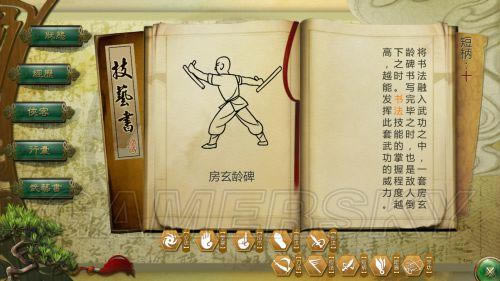 狀態
經歷
俠客
行囊
武藝書
技藝書
房玄龄碑
短柄：十
将书法融入武功之中，一套房玄
龄碑书写完毕之时，也是敌人倒
下之时。书法技能的掌握程度越
高，越能发挥此套武功的威力。
GAMERSKY